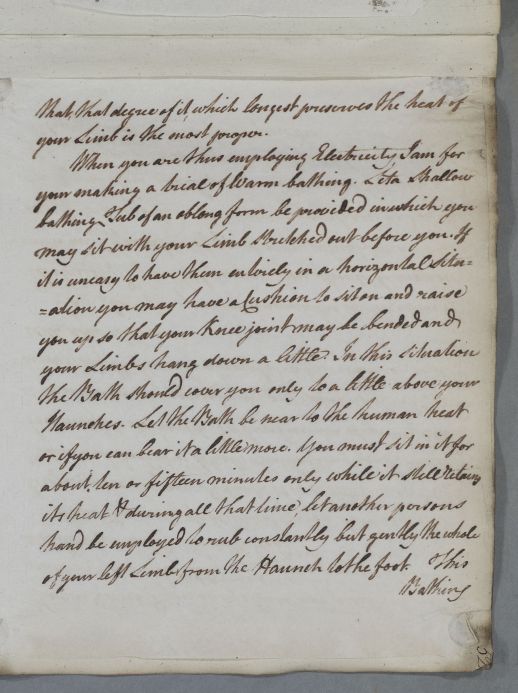 that, that degree of it, which longest preserves the heat of
your Limb is the most proper.
When you are thus employing Electricity, I am for
your making a trial of Warm bathing. Let a Shallow
bathing Tub of an oblong form be provided in which you
may sit with your Limb stretched out before you. If
it is uneasy to have them entirely in a horizontal Situ=
=ation you may have a Cushion to sit on and raise
you up so that your Knee joint may be bended and
your Limbs hang down a little. In this situation
the Bath should cover you only to a little above your
Haunches. Let the Bath be near to the human heat
or if you can bear it a little more. You must sit in it for
about ten or fifteen minutes only while it still retains
its heat & during all that time, let another persons
hand be employed to rub constantly but gently the whole
of your left Limb from the Haunch to the foot. This
Bathing